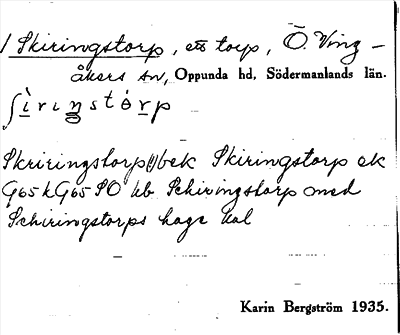 / Skiringstorp, ett torp, Ö. Ving-
åkers sn, Oppunda hd, Södermanlands län.
ʃìriŋstórp
Skiringstorp bek Skiringstorp ek
G65 k G65 SO kb Schiringstorp med
Schiringstorps hage kal
Karin Bergström 1935.